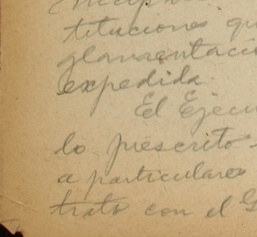 tituciones qu
glamentació
expedida.
El Ejecu
lo prescrito
a particulares
trato con el G